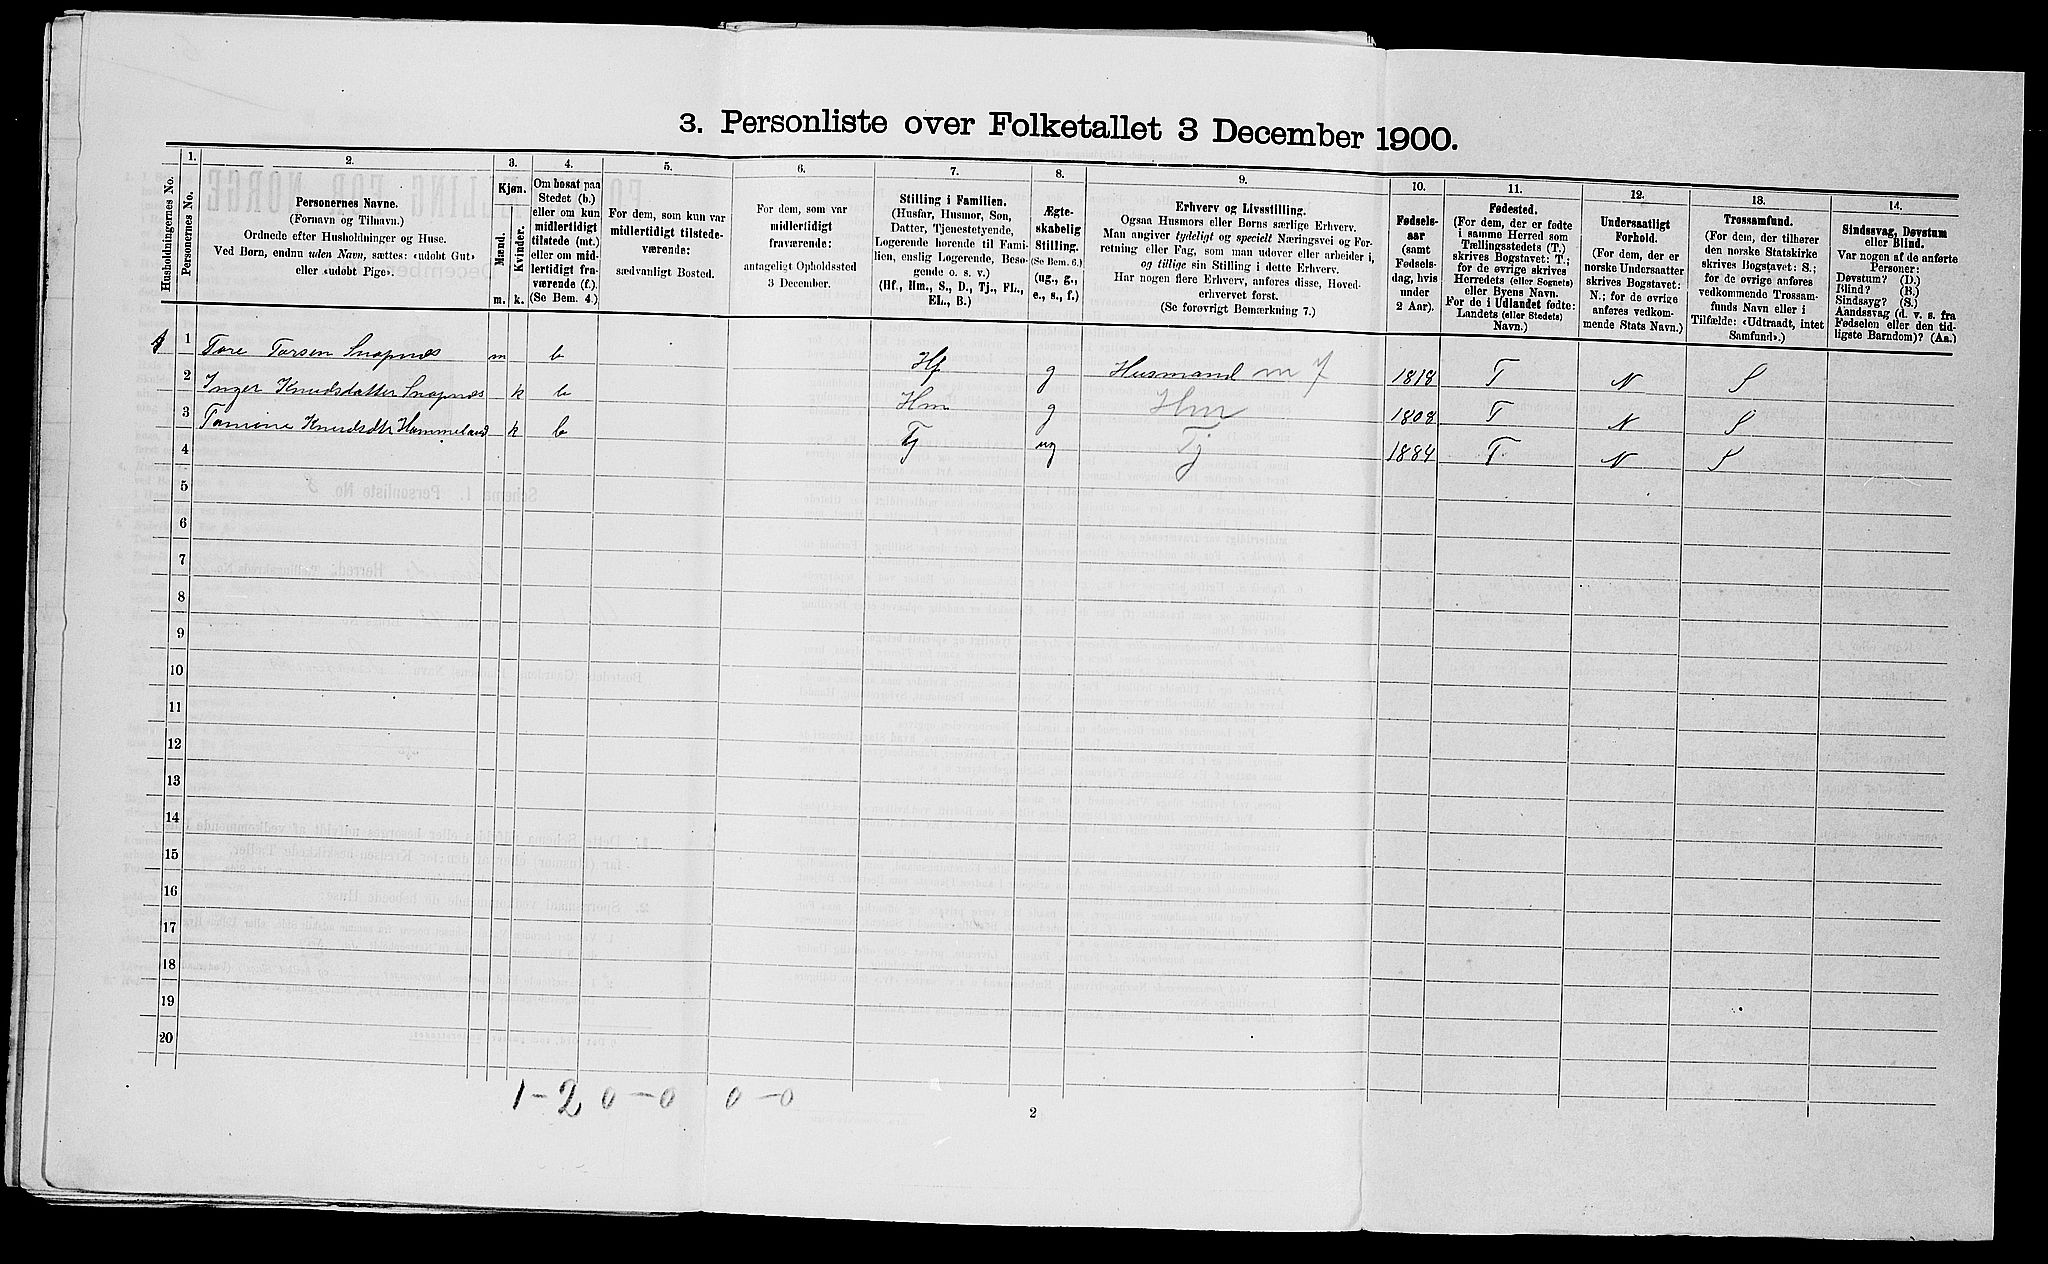 3. Personliste over Folketallet 3 December 1900.
Husholdningernes No.
1.
Personernes No.
2.
Personernes Navne.
(Fornavn og Tilnavn.)
Ordnede efter Husholdninger og Huse.
Ved Børn, endnu uden Navn, sættes: «udøbt Gut»
eller «udøbt Pige».
3.
Kjøn.
Mænd.
Kvinder.
m. k.
4.
Om bosat paa
Stedet (b.)
eller om kun
midlertidigt
tilstede (mt.)
eller om mid-
lertidigt fra-
værende (f.).
(Se Bem. 4.)
5.
For dem, som kun var
midlertidigt tilstede-
værende:
sædvanligt Bosted.
6.
For dem, som var
midlertidigt
fraværende:
antageligt Opholdssted
3 December.
7.
Stilling i Familien.
(Husfar, Husmor, Søn,
Datter, Tjenestetyende,
Logerende hørende til Fami-
lien, enslig Logerende, Besø-
gende o. s. v.)
(Hf., Hm., S., D., Tj., FL.,
EL., B.)
8.
Ægte-
skabelig
Stilling.
(Se Bem. 6.)
(ug., g.,
e., s., f.)
9.
Erhverv og Livsstilling.
Ogsaa Husmors eller Børns særlige Erhverv.
Man angiver tydeligt og specielt Næringsvei og For-
retning eller Fag, som man udøver eller arbeider i,
og tillige sin Stilling i dette Erhverv.
Har nogen flere Erhverv, anføres disse, Hoved-
erhvervet først.
(Se forøvrigt Bemærkning 7.)
10.
Fødsels-
aar
(samt
Fødsels-
dag, hvis
under
2 Aar).
11.
Fødested.
(For dem, der er fødte
i samme Herred som
Tællingsstedets (T.)
skrives Bogstavet: T.;
for de øvrige skrives
Herredets (eller Sognets)
eller Byens Navn.
For de i Udlandet fødte:
Landets (eller Stedets)
Navn.)
12.
Undersaatligt
Forhold.
(For dem, der er
norske Undersaatter
skrives Bogstavet:
N.; for de øvrige
anføres vedkom-
mende Stats Navn.)
13.
Trossamfund.
(For dem, der tilhører
den norske Statskirke
skrives Bogstavet: S.;
for de øvrige anføres
vedkommende Trossam-
funds Navn eller i
Tilfælde: «Udtraadt, intet
Samfund».)
14.
Sindssvag, Døvstum
eller Blind.
Var nogen af de anførte
Personer:
Døvstum? (D.)
Blind? (B.)
Sindssyg? (S.)
Aandssvag (d. v. s. fra
Fødselen eller den tid-
ligste Barndom)? (Aa.)
1 1 Tore Torsen Snapnæs m b Hf g Husmand m J 1818 T N S
2 Inger Knudsdatter Snapnæs k b Hm g Hm 1808 T N S
3 Tomine Knudsdtr Hommeland k b Tj ug Tj 1884 T N S
4
5
6
7
8
9
10
11
12
13
14
15
16
17
18
19
20
1 - 2 0 - 0 0 - 0
2